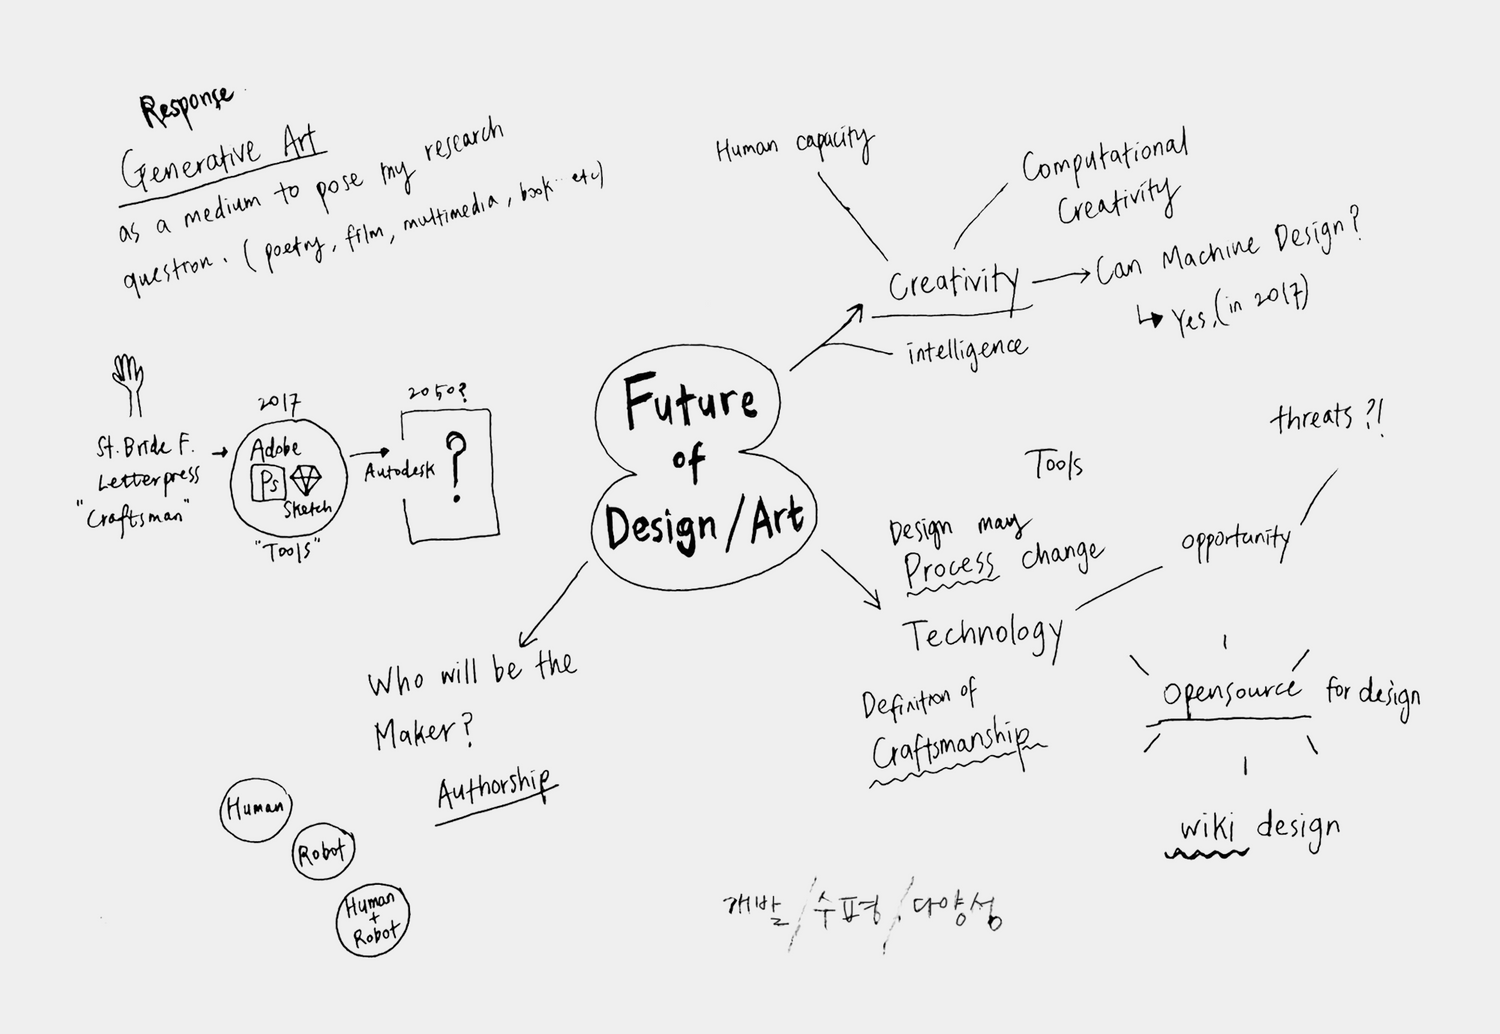 Response
Generative Art
as a medium to pose my research
question. (poetry, film, multimedia, book.. etc)
Human capacity
Computational
Creativity
Creativity
Can Machine Design?
Yes. (in 2017)
intelligence
Future
of
Design/Art
St. Bride F.
Letterpress
"Craftsman"
2017
Adobe
Ps
Sketch
"Tools"
2050?
Autodesk
?
threats?!
Tools
Design may
Process change
opportunity
Technology
Definition of
Craftsmanship
opensource for design
wiki design
Who will be the
Maker?
Authorship
Human
Robot
Human
+
Robot
개발/수평/다양성